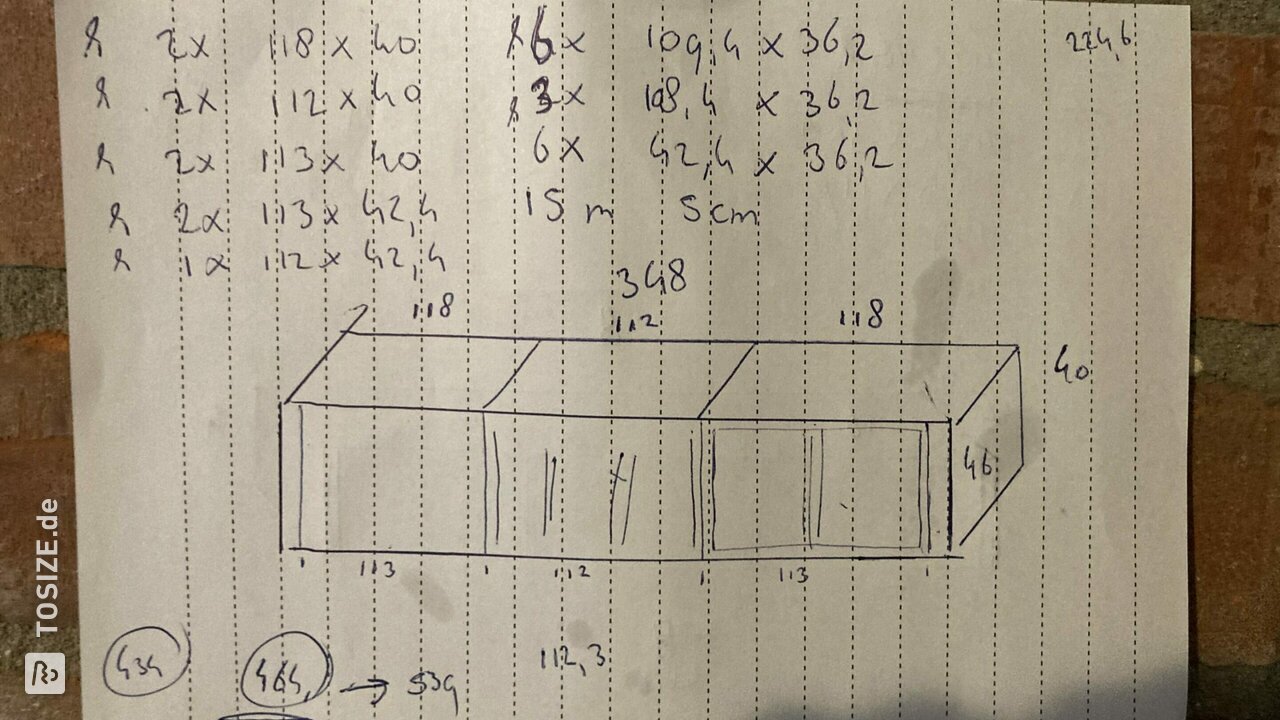 2x 118 x 40
2x 112 x 40
2x 113 x 40
2x 113 x 42,4
1x 112 x 42,4
6x 109,4 x 36,2
3x 108,4 x 36,2
6x 42,4 x 36,2
15 m 5cm
224,6
348
118 112 118
40
46
1 113 1 112 1 113 1
112,3
434 464, → 539
TOSIZE.de